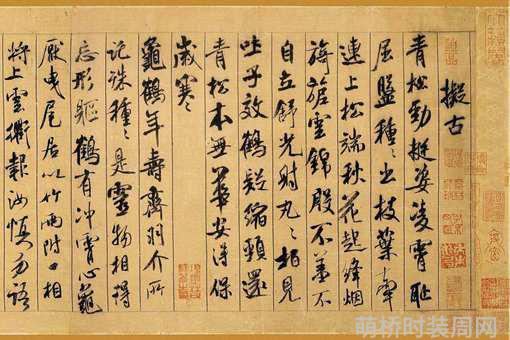 擬古
青松勁挺姿凌霄恥
屈盤種〻出枝葉牽
連上松端秋花起絳烟
旖旎雲錦殷不羞不
自立舒光射丸〻柏見
吐子效鶴疑縮頸還
青松本無華安得保
歲寒
龜鶴年壽齊羽介所
託殊種〻是靈物相得
忘形軀鶴有沖霄心龜
厭曳尾居以竹兩附口相
將上雲衢報汝慎勿語
萌桥时装周网